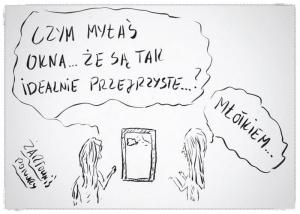 CZYM MYŁAŚ
OKNA... ŻE SĄ TAK
IDEALNIE PRZEJRZYSTE...?
MŁOTKIEM...
RYSUNKI